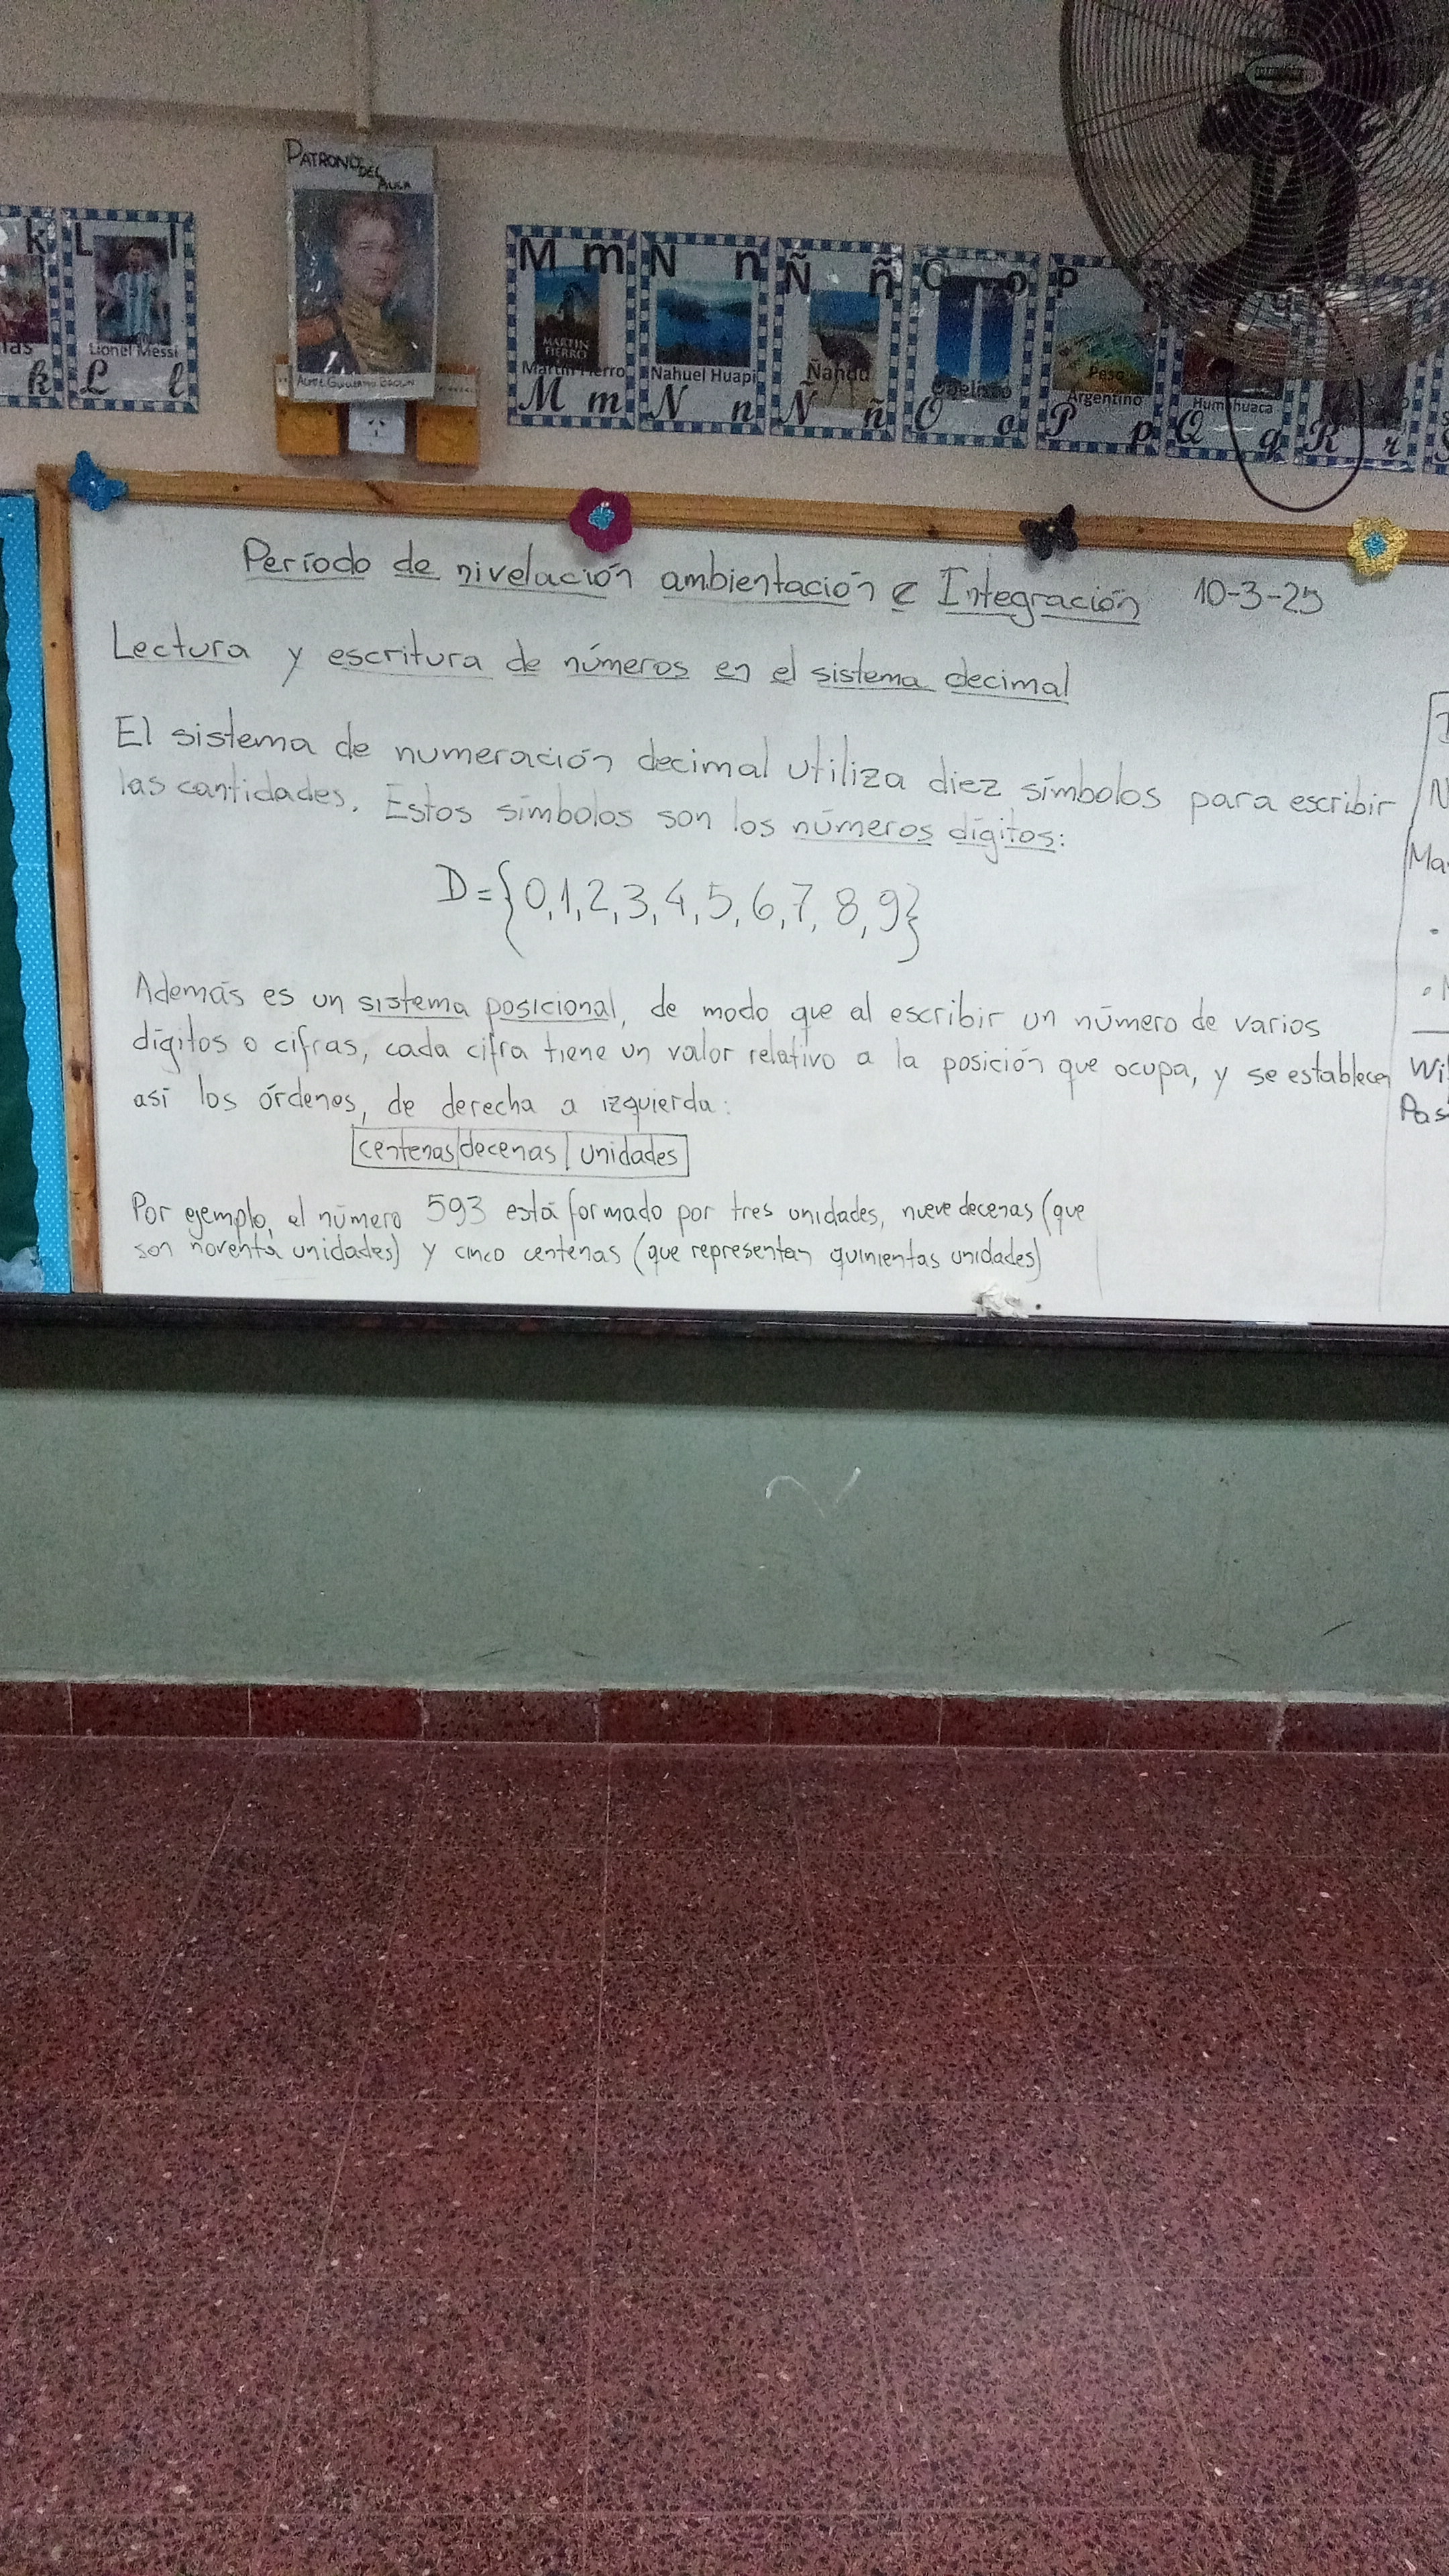 PATRONO
DEL
AULA
ALMTE. GUILLERMO BROWN
k
las
k
L l
Lionel Messi
L l
M m
MARTIN
FIERRO
Martín Fierro
M m
N n
Nahuel Huapi
N n
Ñ ñ
Ñandú
Ñ ñ
O o
Obelisco
O o
P
Peso
Argentino
P p
Humahuaca
Q q
R r
Período de nivelación ambientación e Integración 10-3-25
Lectura y escritura de números en el sistema decimal
El sistema de numeración decimal utiliza diez símbolos para escribir
las cantidades. Estos símbolos son los números dígitos:
D={0,1,2,3,4,5,6,7,8,9}
Además es un sistema posicional, de modo que al escribir un número de varios
dígitos o cifras, cada cifra tiene un valor relativo a la posición que ocupa, y se establecen
así los órdenes, de derecha a izquierda:
centenas|decenas|unidades
Por ejemplo, el número 593 está formado por tres unidades, nueve decenas (que
son noventa unidades) y cinco centenas (que representan quinientas unidades)
N
Ma
Wi
Pas